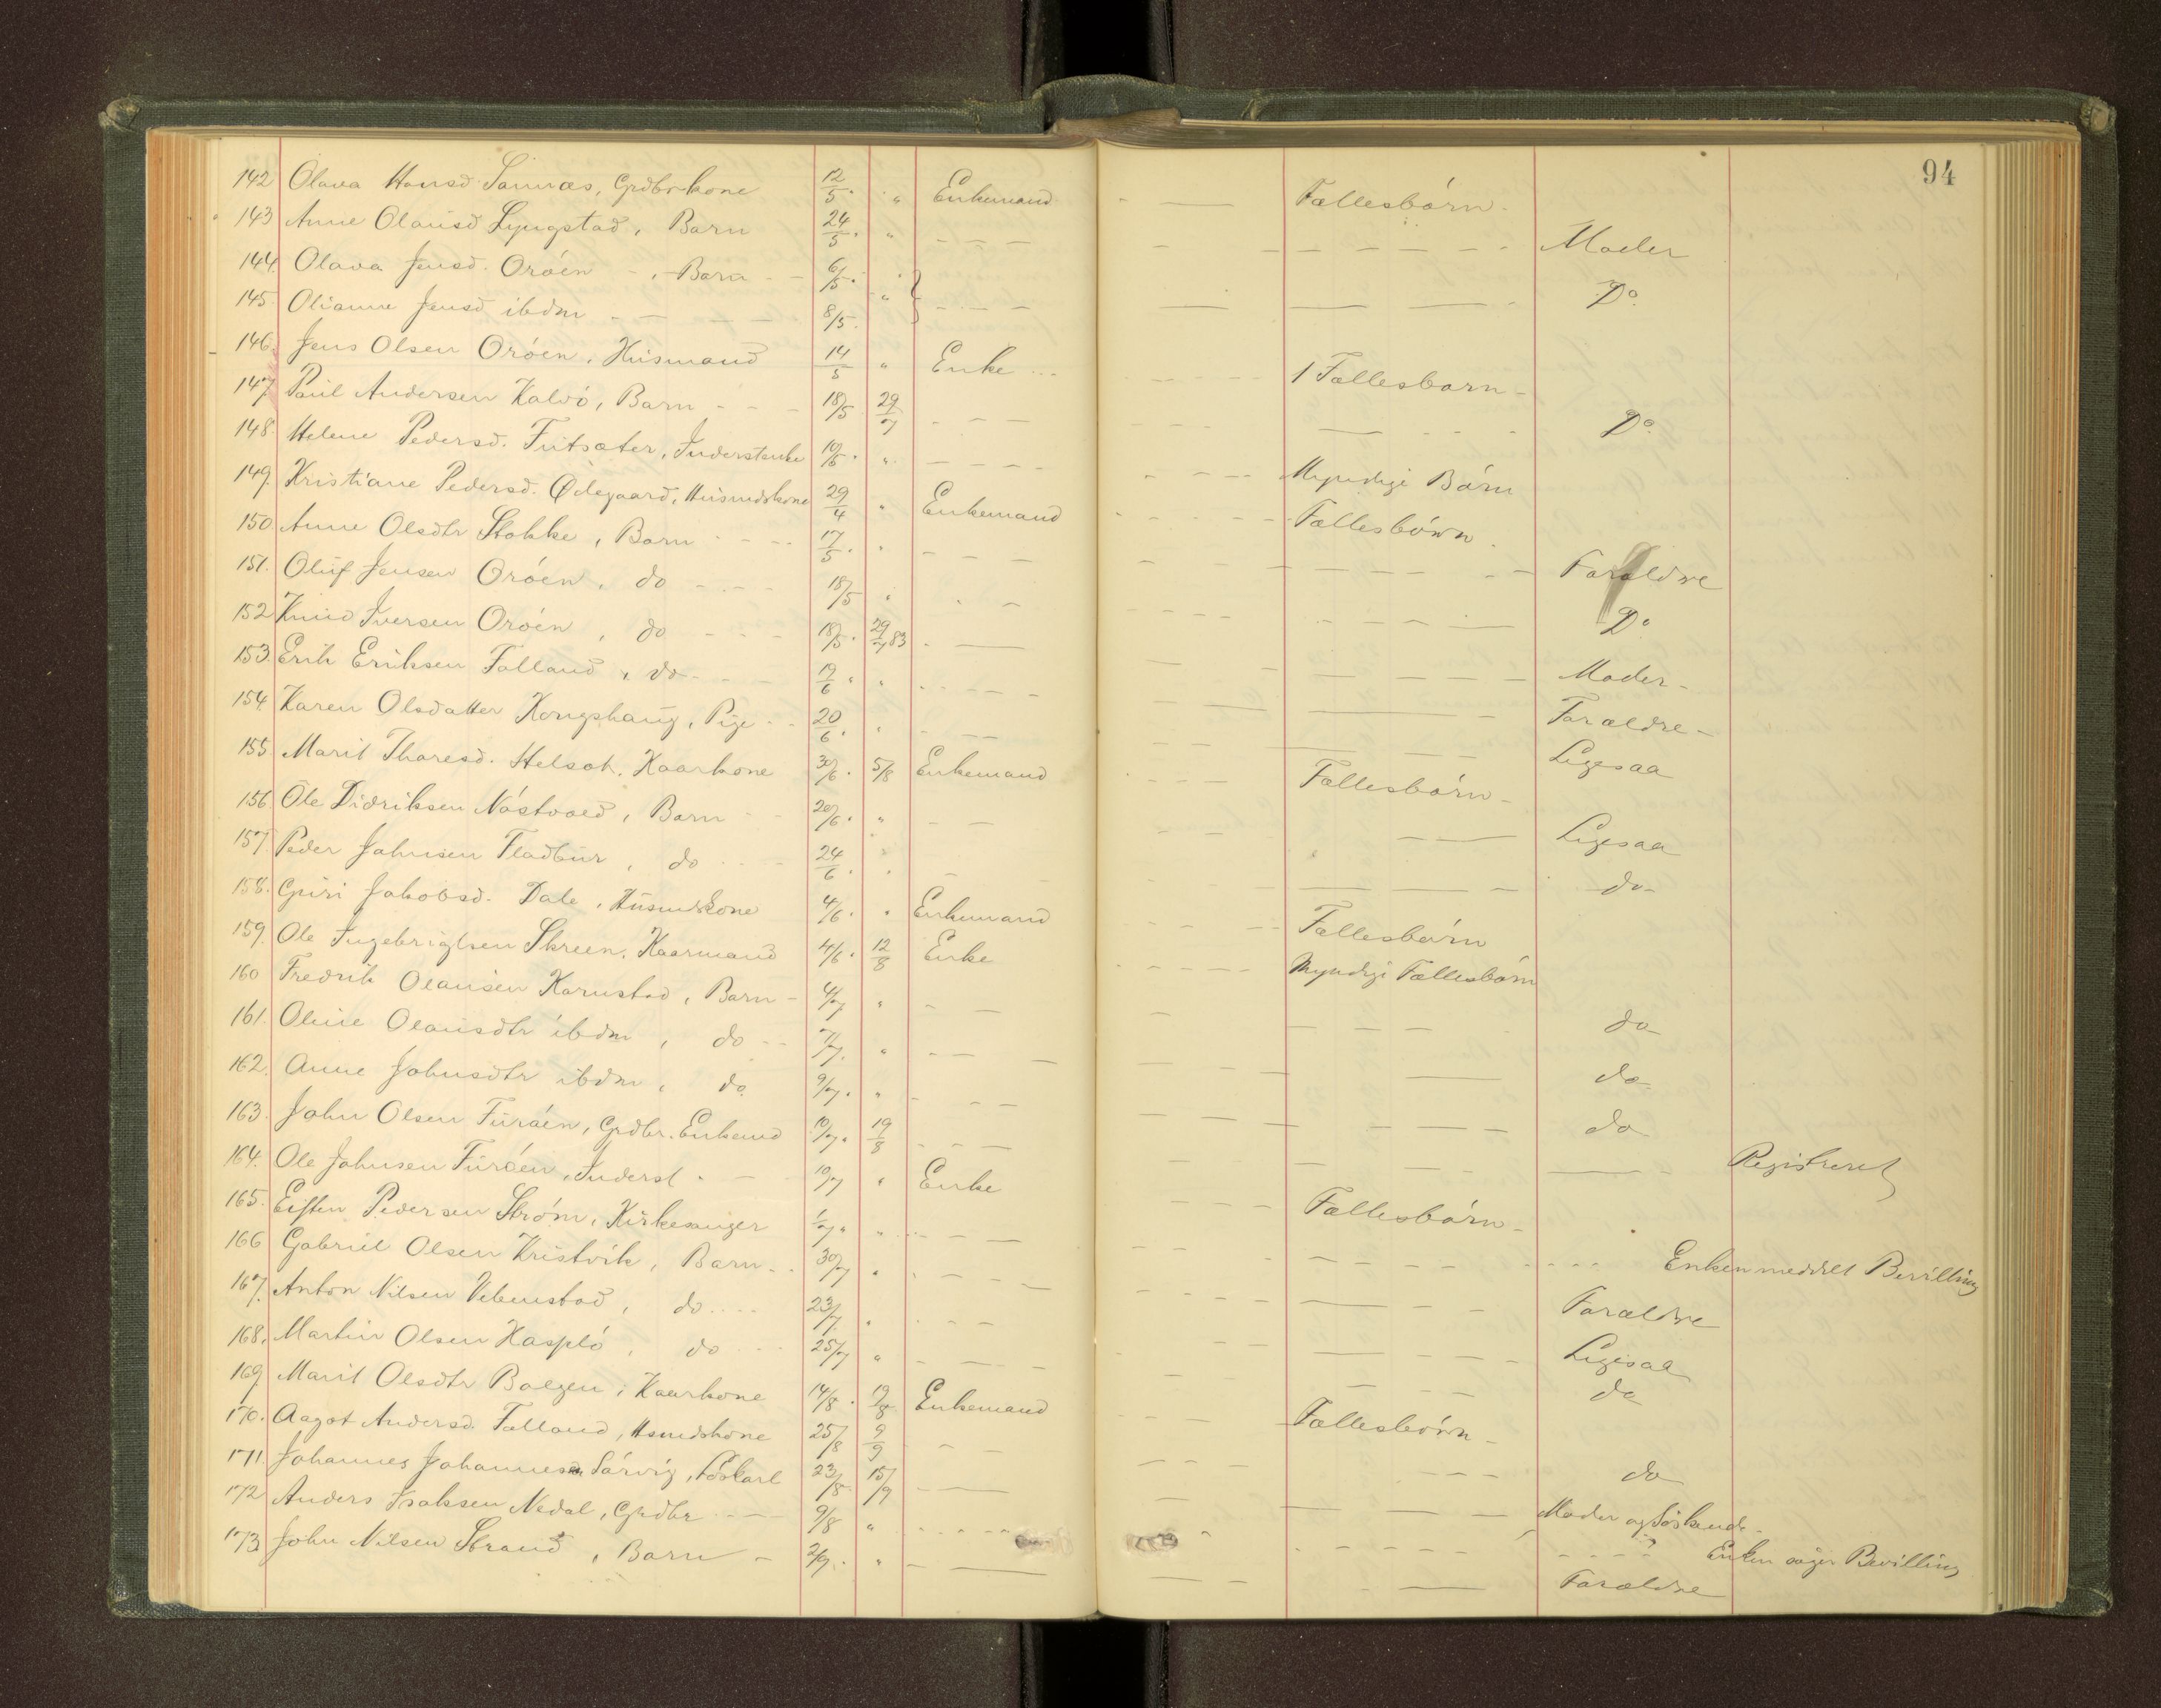 94
142 Olava Hansd. Sannæs, Grdbr.kone 12/5. " Enkemand Fællesbørn.
143 Anne Olausd Lyngstad, Barn 24/5. " Moder
144. Olava Jensd. Orøen, Barn 6/5. " Do.
145. Olianne Jensd ibdm 8/5.
146. Jens Olsen Orøen, Husmand 14/5 " Enke 1 Fællesbarn
147. Paul Andersen Kalvø, Barn 18/5 29/7 Do.
148. Helene Pedersd. Futsæter, Inderstenke 10/5. " Myndige Børn
149. Kristiane Pedersd. Ødegaard, Husmdskone 29/4 " Enkemand Fællesbørn.
150 Anne Olsdtr Stokke, Barn 17/5. " Forældre
151. Oluf Jensen Orøen, do 18/5 " Do
152 Knud Iversen Orøen, do 18/5. 29/7 83 Moder
153. Erik Eriksen Falland, do 19/6. " Forældre
154. Karen Olsdatter Kongshaug, Pige 20/6. " Ligesaa
155. Marit Thoresd. Helset, Kaarkone 30/6. 5/8 Enkemand Fællesbørn
156. Ole Didriksen Nåstvold, Barn 20/6. " Ligesaa
157. Peder Johnsen Fladbur, do 24/6. " do
158. Guri Jakobsd. Dale, Husmdskone 4/6. " Enkemand Fællesbørn
159. Ole Ingebrigtsen Skreen, Kaarmand 4/6. 12/8 Enke Myndige Fællesbørn
160 Fredrik Olausen Karnstad, Barn 4/7 " do
161. Oline Olausdtr ibdm, do 7/7. " do
162. Anne Johnsdtr ibdm, do 9/7. " do
163. John Olsen Furøen, Grdbr. Enkemd 10/7. 19/8 Registreret
164. Ole Johnsen Furøen, Inderst 10/7 " Enke Fællesbørn
165. Eisten Pedersen Strøm, Kirkesanger 1/7. " Enken meddelt Bevilling
166 Gabriel Olsen Kristvik, Barn 30/7 " Forældre
167. Anton Nilsen Vebenstad, do 23/7. " Ligesaa
168. Martin Olsen Kasplø, do 25/7 " do
169. Marit Olsdtr Bolgen, Kaarkone 14/8. 19/8 Enkemand Fællesbørn
170. Aagot Andersd. Falland, Hsmdskone 25/8 9/9 do
171. Johannes Johannesen Sørvig, Føskarl 23/8. 15/9 Moder og Søskende
172 Anders Isaksen Nedal, Grdbr 9/8 " Enken søger Bevilling
173. John Nilsen Strand, Barn 2/9. " Forældre